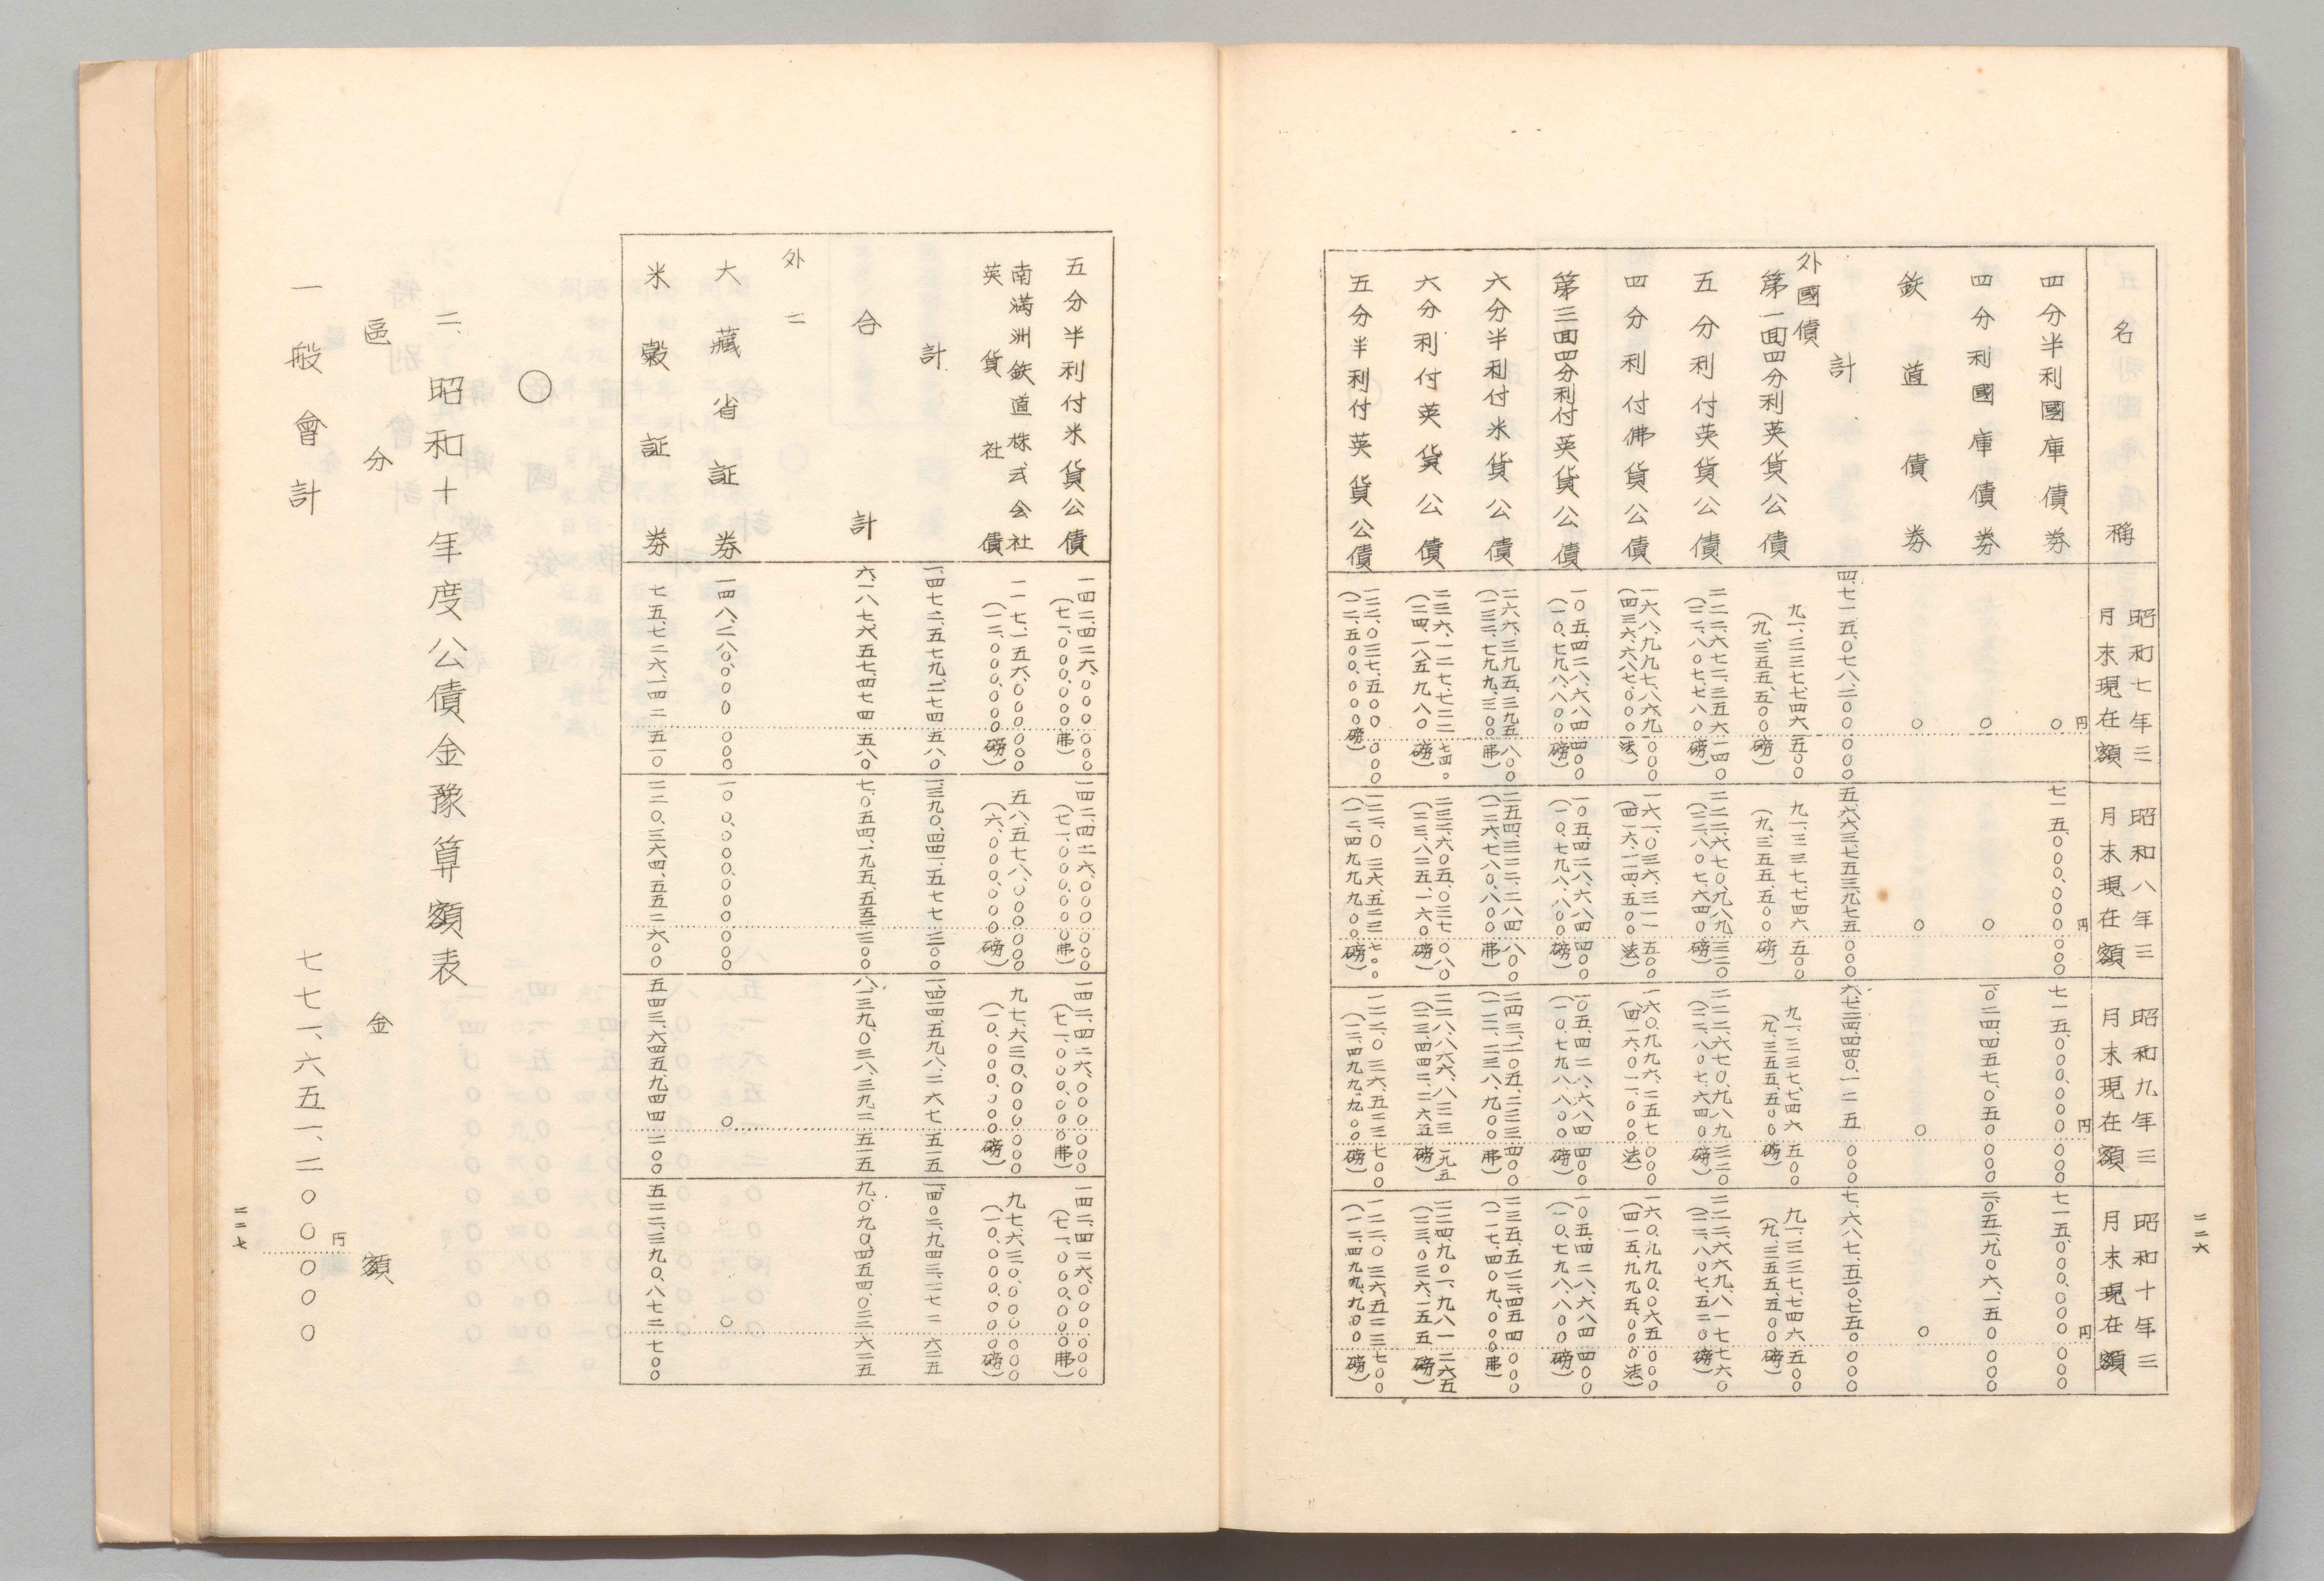 二二六
名稱 昭和七年三月末現在額 昭和八年三月末現在額 昭和九年三月末現在額 昭和十年三月末現在額
四分半利國庫債券 〇円 七一五、〇〇〇、〇〇〇円〇〇〇 七一五、〇〇〇、〇〇〇円〇〇〇 七一五、〇〇〇、〇〇〇円〇〇〇
四分利國庫債券 〇 〇 一、〇二四、四五七、〇五〇〇〇〇 二、〇五一、九〇六、一五〇〇〇〇
鉄道債券 〇 〇 〇 〇
計 四、七一五、〇七八、二〇〇〇〇〇 五、六六三、七五三、九七五〇〇〇 六、七二四、四四〇、一二五〇〇〇 七、六八七、五一〇、七五〇〇〇〇
外國債
第一回四分利英貨公債 九一、三三七、七四六五〇〇 (九、三五五、五〇〇磅) 九一、三三七、七四六五〇〇 (九、三五五、五〇〇磅) 九一、三三七、七四六五〇〇 (九、三五五、五〇〇磅) 九一、三三七、七四六五〇〇 (九、三五五、五〇〇磅)
五分利付英貨公債 二二二、六七二、三五六一四〇 (二二、八〇七、七八〇磅) 二二二、六七〇、九八九三二〇 (二二、八〇七、六四〇磅) 二二二、六七〇、九八九三二〇 (二二、八〇七、六四〇磅) 二二二、六六九、八一七七六〇 (二二、八〇七、五二〇磅)
四分利付佛貨公債 一六八、九九七、八六九〇〇〇 (四三六、六八七、〇〇〇法) 一六一、〇三六、三一一五〇〇 (四一六、一一四、五〇〇法) 一六〇、九九六、二五七〇〇〇 (四一六、〇一一、〇〇〇法) 一六〇、九九〇、〇六五〇〇〇 (四一五、九九五、〇〇〇法)
第三回四分利付英貨公債 一〇五、四二八、六八四四〇〇 (一〇、七九八、八〇〇磅) 一〇五、四二八、六八四四〇〇 (一〇、七九八、八〇〇磅) 一〇五、四二八、六八四四〇〇 (一〇、七九八、八〇〇磅) 一〇五、四二八、六八四四〇〇 (一〇、七九八、八〇〇磅)
六分半利付米貨公債 二六六、三九五、三九五八〇〇 (一三二、七九九、三〇〇弗) 二五四、三二二、二八四八〇〇 (一二六、七八〇、八〇〇弗) 二四三、二〇五、二三三四〇〇 (一二一、二三八、九〇〇弗) 二三五、五二二、四五四〇〇〇 (一一七、四〇九、〇〇〇弗)
六分利付英貨公債 二三六、一二七、七二二七四〇 (二四、一八五、九八〇磅) 二三二、六〇五、〇三七〇八〇 (二三、八二五、一六〇磅) 二二八、八六六、八三三一九五 (二三、四四二、二六五磅) 二二四、九〇一、九八一二六五 (二三、〇三六、一五五磅)
五分半利付英貨公債 一二二、〇三七、五〇〇〇〇〇 (一二、五〇〇、〇〇〇磅) 一二二、〇三六、五二三七〇〇 (一二、四九九、九〇〇磅) 一二二、〇三六、五二三七〇〇 (一二、四九九、九〇〇磅) 一二二、〇三六、五二三七〇〇 (一二、四九九、九〇〇磅)
五分半利付米貨公債 一四二、四二六、〇〇〇〇〇〇 (七一、〇〇〇、〇〇〇弗) 一四二、四二六、〇〇〇〇〇〇 (七一、〇〇〇、〇〇〇弗) 一四二、四二六、〇〇〇〇〇〇 (七一、〇〇〇、〇〇〇弗) 一四二、四二六、〇〇〇〇〇〇 (七一、〇〇〇、〇〇〇弗)
南満洲鉄道株式会社英貨社債 一一七、一五六、〇〇〇〇〇〇 (一二、〇〇〇、〇〇〇磅) 五八、五七八、〇〇〇〇〇〇 (六、〇〇〇、〇〇〇磅) 九七、六三〇、〇〇〇〇〇〇 (一〇、〇〇〇、〇〇〇磅) 九七、六三〇、〇〇〇〇〇〇 (一〇、〇〇〇、〇〇〇磅)
計 一、四七二、五七九、二七四五八〇 一、三九〇、四四一、五七七三〇〇 一、四一四、五九八、二六七五一五 一、四〇二、九四三、二七二六二五
合計 六、一八七、六五七、四七四五八〇 七、〇五四、一九五、五五二三〇〇 八、一三九、〇三八、三九二五一五 九、〇九〇、四五四、〇二二六二五
外ニ
大藏省証券 一四八、二八〇、〇〇〇〇〇〇 一〇、〇〇〇、〇〇〇〇〇〇 〇 〇
米穀証券 七五、七二六、一四二五一〇 二二〇、三六四、五五二六〇〇 五四三、六四五、九四四二〇〇 五二二、三九〇、八七二七〇〇
〇
二、昭和十年度公債金豫算額表
區分 金額
一般會計 七七一、六五一、二〇〇円〇〇〇
二二七